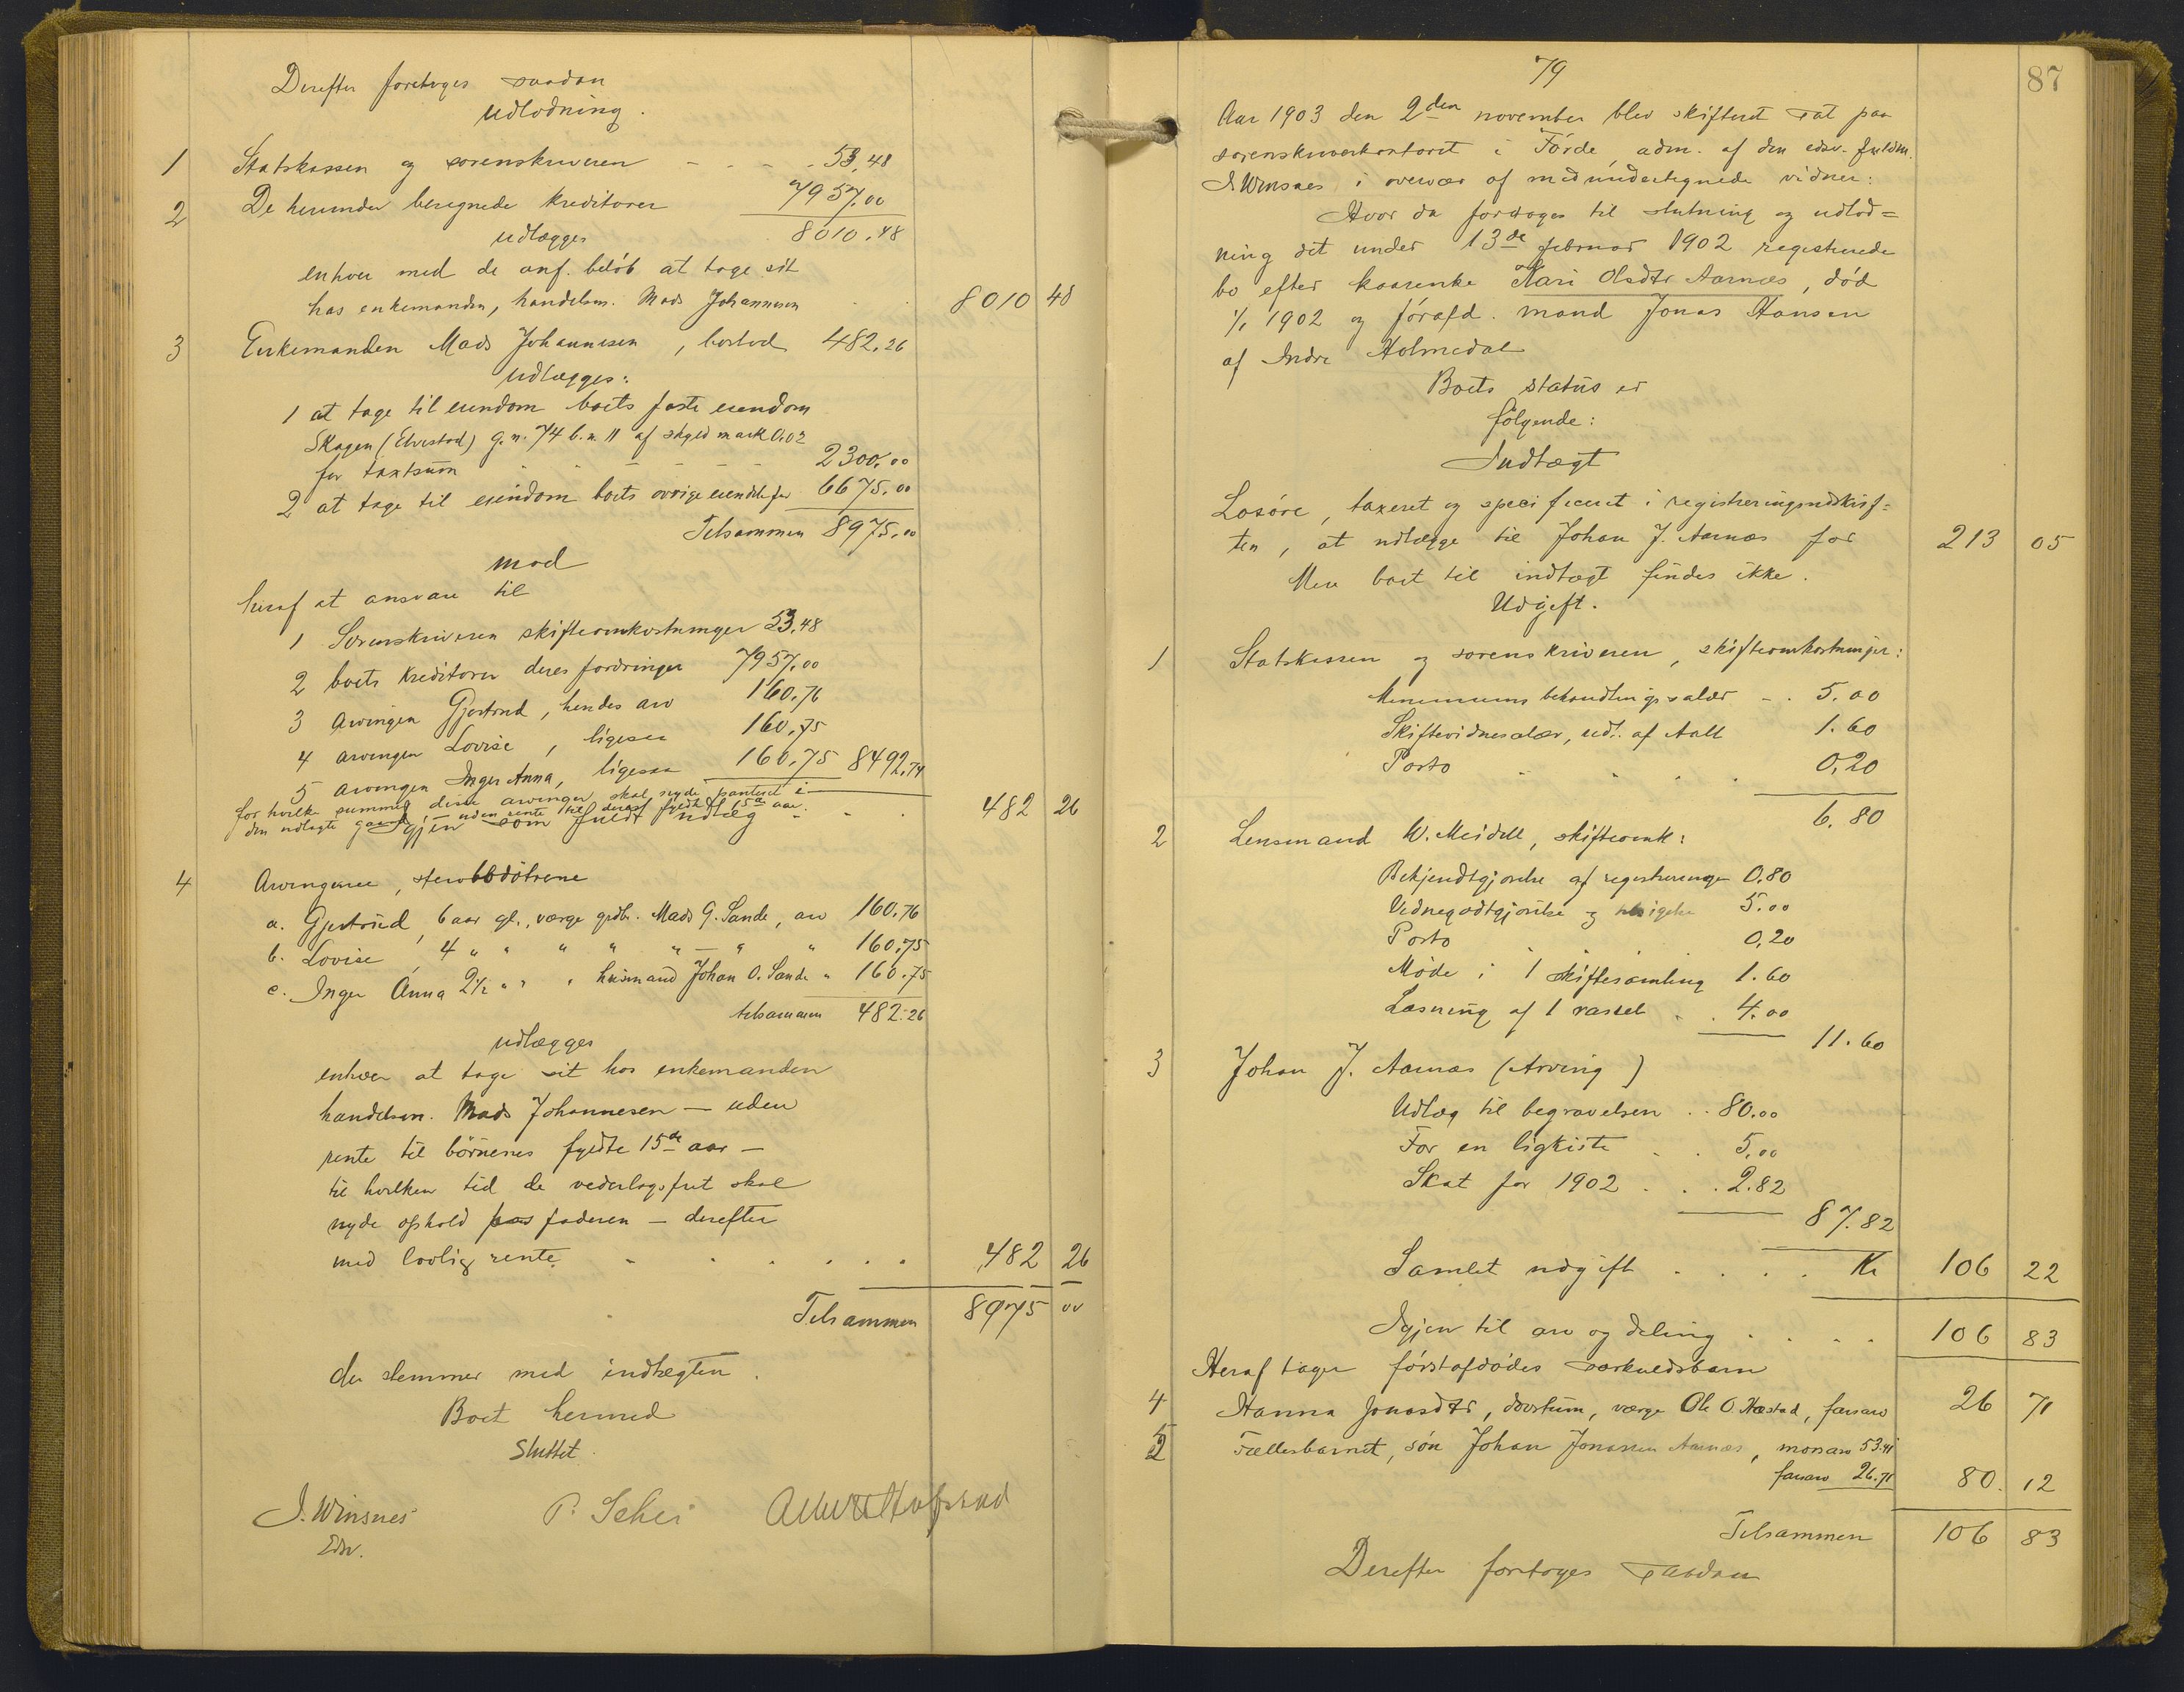 Derefter foretoges saadan
Udlodning.
1 Statskassen og sorenskriveren - - - 53,48
2 De herunder beregnede kreditorer 7957,00
udlægges 8010,48
enhver med de anf. beløb at tage sit
hos enkemanden, handelsm. Mads Johannesen . . 8010 48
3 Enkemanden Mads Johannesen, boslod 482,26
Udlægges:
1 at tage til eiendom boets faste eiendom
Skagen (Elvestad) g.n. 74 b.n. 11 af skyld mark 0.02
for taxtsum - - - - - 2300,00
2 at tage til eiendom boets øvrige eiendele for 6675,00
Tilsammen 8975,00
mod
heraf at ansvare til
1 Sorenskriveren skifteomkostninger 53,48
2 boets kreditorer deres fordringer 7957,00
3 arvingen Gjertrud, hendes arv 160,76
4 arvingen Lovise, ligesaa 160,75
5 arvingen Inger Anna, ligesaa 160,75 8492,74
for hvilke summer disse arvinger skal nyde panteret i
den udlagte gaard, - uden rente til deres fyldte 15de aar.
Igjen som fuldt udlæg - . . 482 26
4 Arvingerne, stervbødøtrene
a. Gjertrud, 6 aar gl., værge grdbr. Mads G. Sande, arv 160,76
b. Lovise, 4 " " " " " - " " 160,75
c. Inger Anna 2½ " " " husmand Johan O. Sande " 160,75
tilsammen 482.26
udlægges
enhver at tage sit hos enkemanden
handelsm. Mads Johannesen - uden
rente til børnenes fyldte 15de aar -
til hvilken tid de vederlagsfrit skal
nyde ophold hos faderen - derefter
med lovlig rente. - . . . . . 482 26
Tilsammen 8975 00
der stemmer med indtægten.
Boet hermed
Sluttet.
J. Winsnes P. Schei
Edsv.
79
87
Aar 1903 den 2den november blev skifteret sat paa
sorenskriverkontoret i Førde, adm. af den edsv. fuldm.
J. Winsnes i overvær af medundertegnede vidner:
Hvor da foretoges til slutning og udlod=
ning det under 13de februar 1902 registrerede
bo efter kaarenke Kari Olsdtr Aarnes, død
1/1 1902 og føravd. mand Jonas Hansen
af Indre Holmedal
Boets status er
følgende:
Indtægt
Løsøre, taxeret og specificeret i registreringsudskrif=
ten, at udlægge til Johan J. Aarnæs for 213 05
Mere boet til indtægt findes ikke.
Udgift.
1 Statskassen og sorenskriveren, skifteomkostninger:
Minimums behandlingssalær - . 5.00
Skiftevidnesalær, udl. af Aall 1.60
Porto . . . . 0,20
6.80
2 Lensmand W. Meidell, skifteomk:
Bekjendtgjørelse af registreringen 0,80
Vidnegodtgjørelse og 5.00
Porto . . 0,20
Møde i 1 skiftesamling 1.60
Læsning af 1 . . 4.00
11.60
3 Johan J. Aarnæs (Arving)
Udlæg til begravelsen . . 80,00
For en ligkiste . . 5,00
Skat for 1902 . . . 2.82
87.82
Samlet udgift . . . . Kr 106 22
Igjen til arv og deling . . . . 106 83
Heraf tager førstafdødes særkuldsbarn
4 Hanna Jonasdtr, døvstum, værge Ole O. Hæstad, farsarv 26 71
5 Fællesbarnet, søn Johan Jonassen Aarnæs, morsarv 53.41
farsarv 26.71 80. 12
Tilsammen 106 83
Derefter foretoges saadan